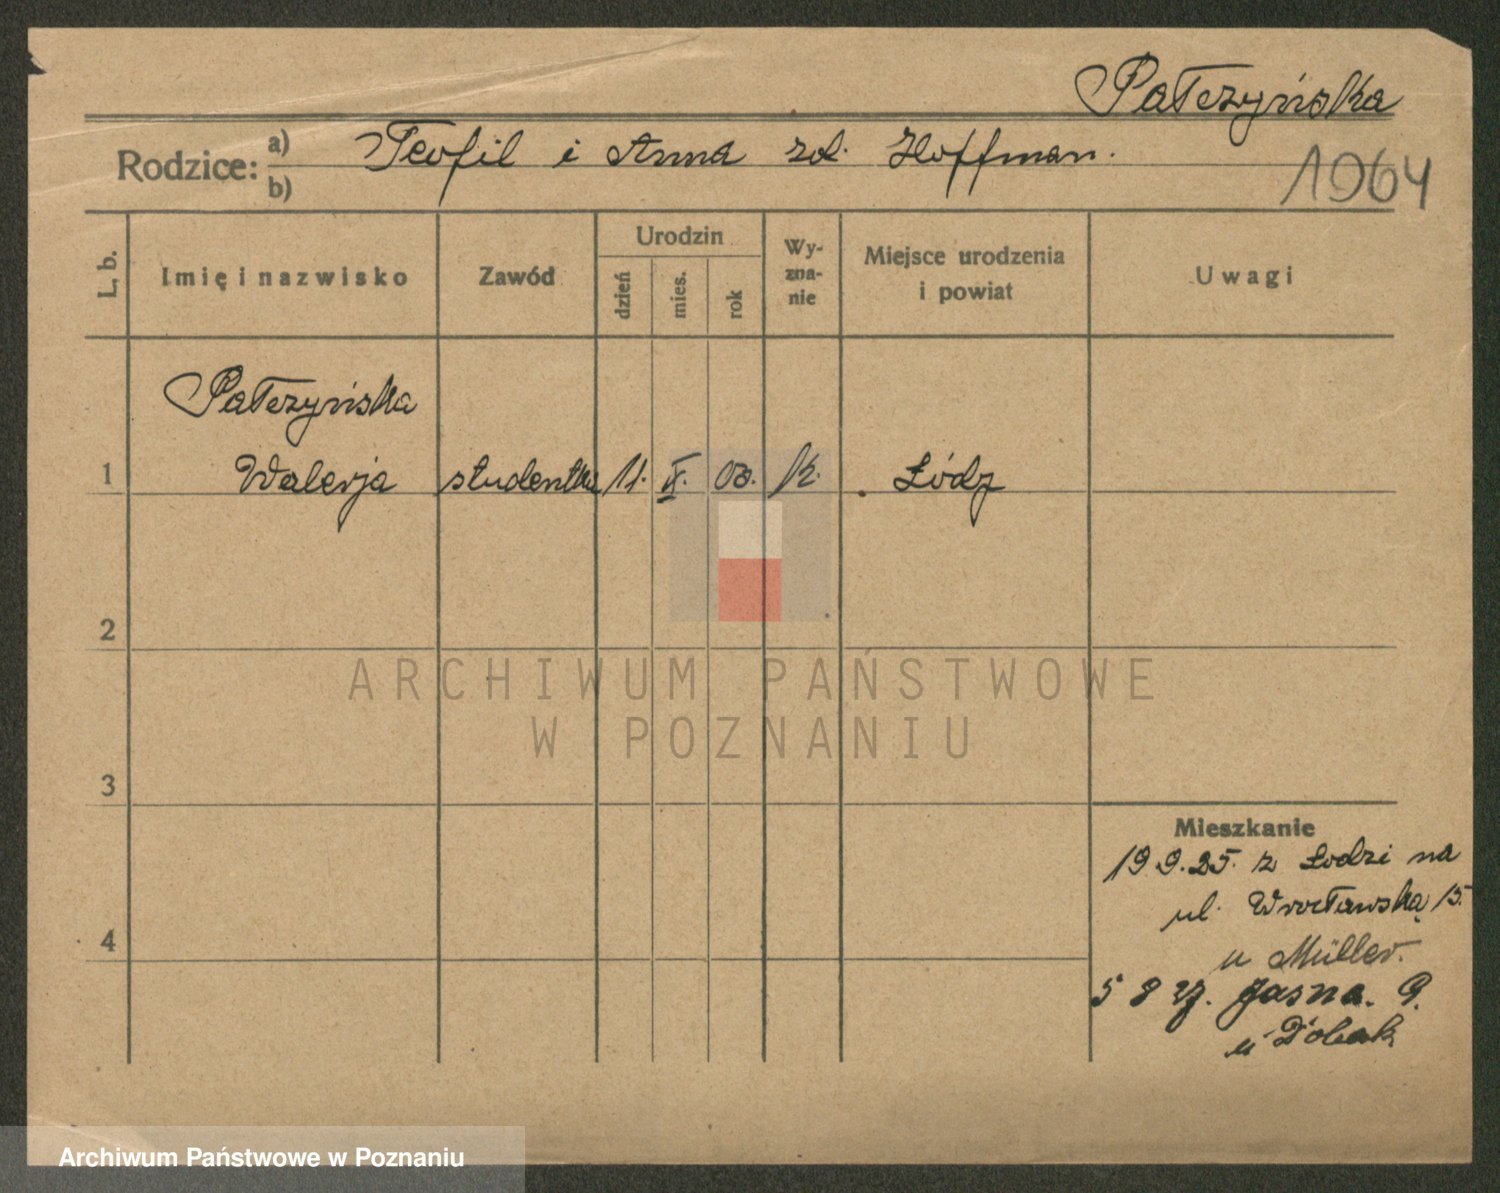 Pałczyńska
Rodzice: a) Teofil i Anna zd. Hoffman.
b)
1964
L. b.
Imię i nazwisko
Zawód
Urodzin
dzień
mies.
rok
Wy-
zna-
nie
Miejsce urodzenia
i powiat
Uwagi
Pałczyńska
1 Walerja studentka 11. 03. k. Łódź
2
3
4
Mieszkanie
19.9.25. z Łodzi na
ul. Wrocławską 15.
u Müller.
5 8 27. Jasna. 9.
u Dobak
ARCHIWUM PAŃSTWOWE
W POZNANIU
Archiwum Państwowe w Poznaniu